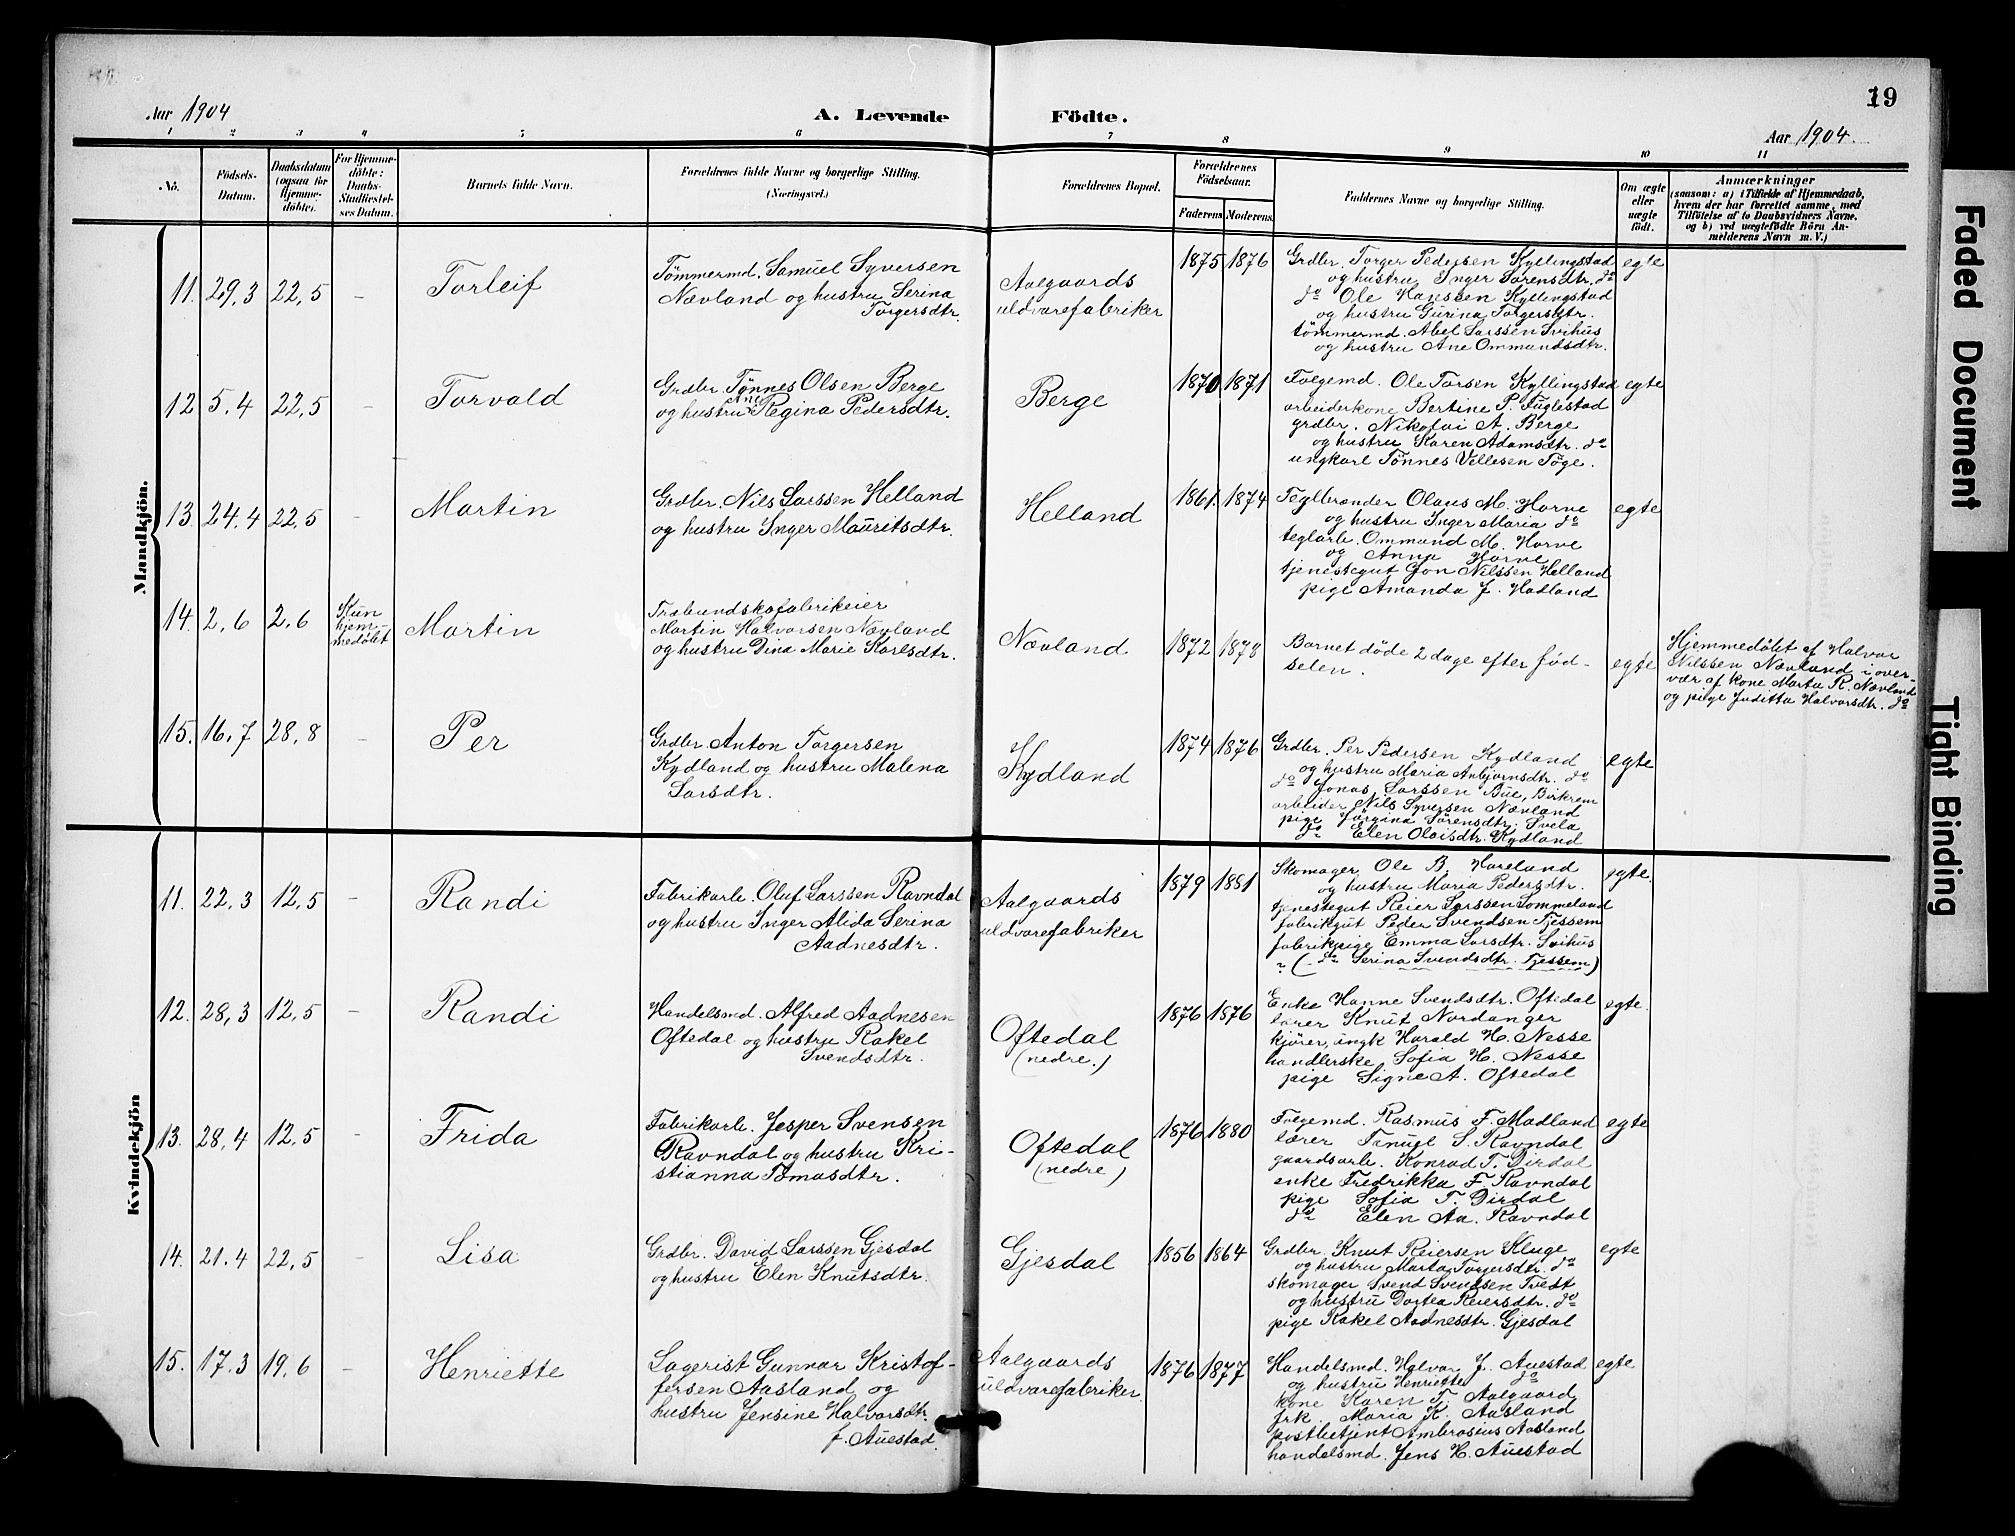 19
Aar 1904
A. Levende
Födte.
Aar 1904.
1 2 3 4 5 6 7 8 9 10 11
No.
Födsels-
Datum.
Daabsdatum
(ogsaa for
Hjemme-
döbte).
For Hjemme-
döbte:
Daabs-
Stadfæstel-
ses Datum.
Barnets fulde Navn.
Forældrenes fulde Navne og borgerlige Stilling.
(Næringsvei.)
Forældrenes Bopæl.
Forældrenes
Födselsaar.
Faderens.
Moderens.
Faddernes Navne og borgerlige Stilling.
Om ægte
eller
uægte
födt.
Anmærkninger
(saasom: a) i Tilfælde af Hjemmedaab,
hvem der har forrettet samme, med
Tilföielse af to Daabsvidners Navne,
og b) ved uægtefödte Börn An-
melderens Navn m. V.)
Mandkjön.
11. 29,3 22,5 –
Torleif
Tømmermd. Samuel Syversen
Nævland og hustru Serina
Torgersdtr.
Aalgaards
uldvarefabriker
1875 1876
Grdbr. Torger Pedersen Kyllingstad
og hustru Inger Sørensdtr. do
do Ole Hanssen Kyllingstad
og hustru Gurina Torgersdtr.
tømmermd. Abel Larssen Svihus
og hustru Ane Ommundsdtr.
egte
12 5.4 22,5 –
Torvald
Grdbr. Tønnes Olsen Berge
Ane
og hustru Regina Pedersdtr.
Berge
1870 1871
Folgemd. Ole Torsen Kyllingstad
arbeiderkone Bertine P. Fuglestad
grdbr. Nikolai A. Berge
og hustru Karen Adamsdtr. do
ungkarl Tønnes Vellesen Töge.
egte
13. 24.4 22,5 –
Martin
Grdbr. Nils Larssen Helland
og hustru Inger Mauritsdtr.
Helland
1861. 1874
Teglbrænder Olaus M. Horve
og hustru Inger Maria do
teglarb. Ommund M. Horve
og Anna Horve
tjenestegut Jon Nilssen Helland
pige Amanda J. Hadland
egte
14. 2,6 2,6
Kun
hjem-
medøbt
Martin
Træbundskofabrikeier
Martin Halvorsen Nævland
og hustru Dina Marie Karlsdtr.
Nævland
1872 1878
Barnet døde 2 dage efter fød-
selen.
egte
Hjemmedøbt af Halvor
Nilssen Nævland i over-
vær af kone Marta R. Nævland
og pige Juditta Halvorsdtr. do
15. 16,7 28,8 –
Per
Grdbr. Anton Torgersen
Kydland og hustru Malena
Larsdtr.
Kydland
1874 1876
Grdbr. Per Pedersen Kydland
og hustru Maria Anbjørnsdtr. do
do Jonas Larssen Bue, Birkrem
arbeider Nils Syversen Nævland
pige Jørgina Sørensdtr. Svela
do Elen Olaisdtr. Kydland
egte
Kvindekjön
11. 22,3 12,5 –
Randi
Fabrikarb. Oluf Larssen Ravndal
og hustru Inger Alida Serina
Aadnesdtr.
Aalgaards
uldvarefabriker
1879 1881
Skomager Ole B. Hareland
og hustru Maria Pedersdtr.
tjenestegut Reier Larssen Lommeland
fabrikgut Peder Svendsen Tjessem
fabrikpige Emma Larsdtr. Svihus
" ( do Serina Svendsdtr. Tjessem)
egte.
12. 28,3 12,5 –
Randi
Handelsmd. Alfred Aadnesen
Oftedal og hustru Rakel
Svendsdtr.
Oftedal
(nedre.)
1876 1876
Enke Hanne Svendsdtr. Oftedal
lærer Knut Nordanger
kjører, ungk Harald H. Nesse
handlerske Sofia H. Nesse
pige Signe A. Oftedal
egte.
13. 28,4 12,5 –
Frida
Fabrikarb. Jesper Svensen
Ravndal og hustru Kri-
stianna Tomasdtr.
Oftedal
(nedre)
1876 1880
Folgemd. Rasmus F. Madland
lærer Tanuel S. Ravndal
gaardsarb. Konrad T. Dirdal
enke Fredrikka F. Ravndal
pige Sofia T. Dirdal
do Elen Aa. Ravndal
egte
14. 21.4 22,5 –
Lisa
Grdbr. David Larssen Gjesdal
og hustru Elen Knutsdtr.
Gjesdal
1856 1864
Grdbr. Knut Reiersen Kluge
og hustru Marta Torgersdtr. do
skomager Svend Svendsen Tvedt
og hustru Dortea Reiersdtr. do
pige Rakel Aadnesdtr. Gjesdal
egte
15. 17.3 19,6 –
Henriette
Lagerist Gunnar Kristof-
fersen Aasland og
hustru Jensine Halvorsdtr.
f. Auestad.
Aalgaards
uldvarefabriker
1876 1877
Handelsmd. Halvor J. Auestad
og hustru Henriette do
kone Karen T. Aalgaard
frk. Maria K. Aasland
postbetjent Ambrosius Aasland
handelsmd. Jens H. Auestad
egte
Faded Document
Tight Binding